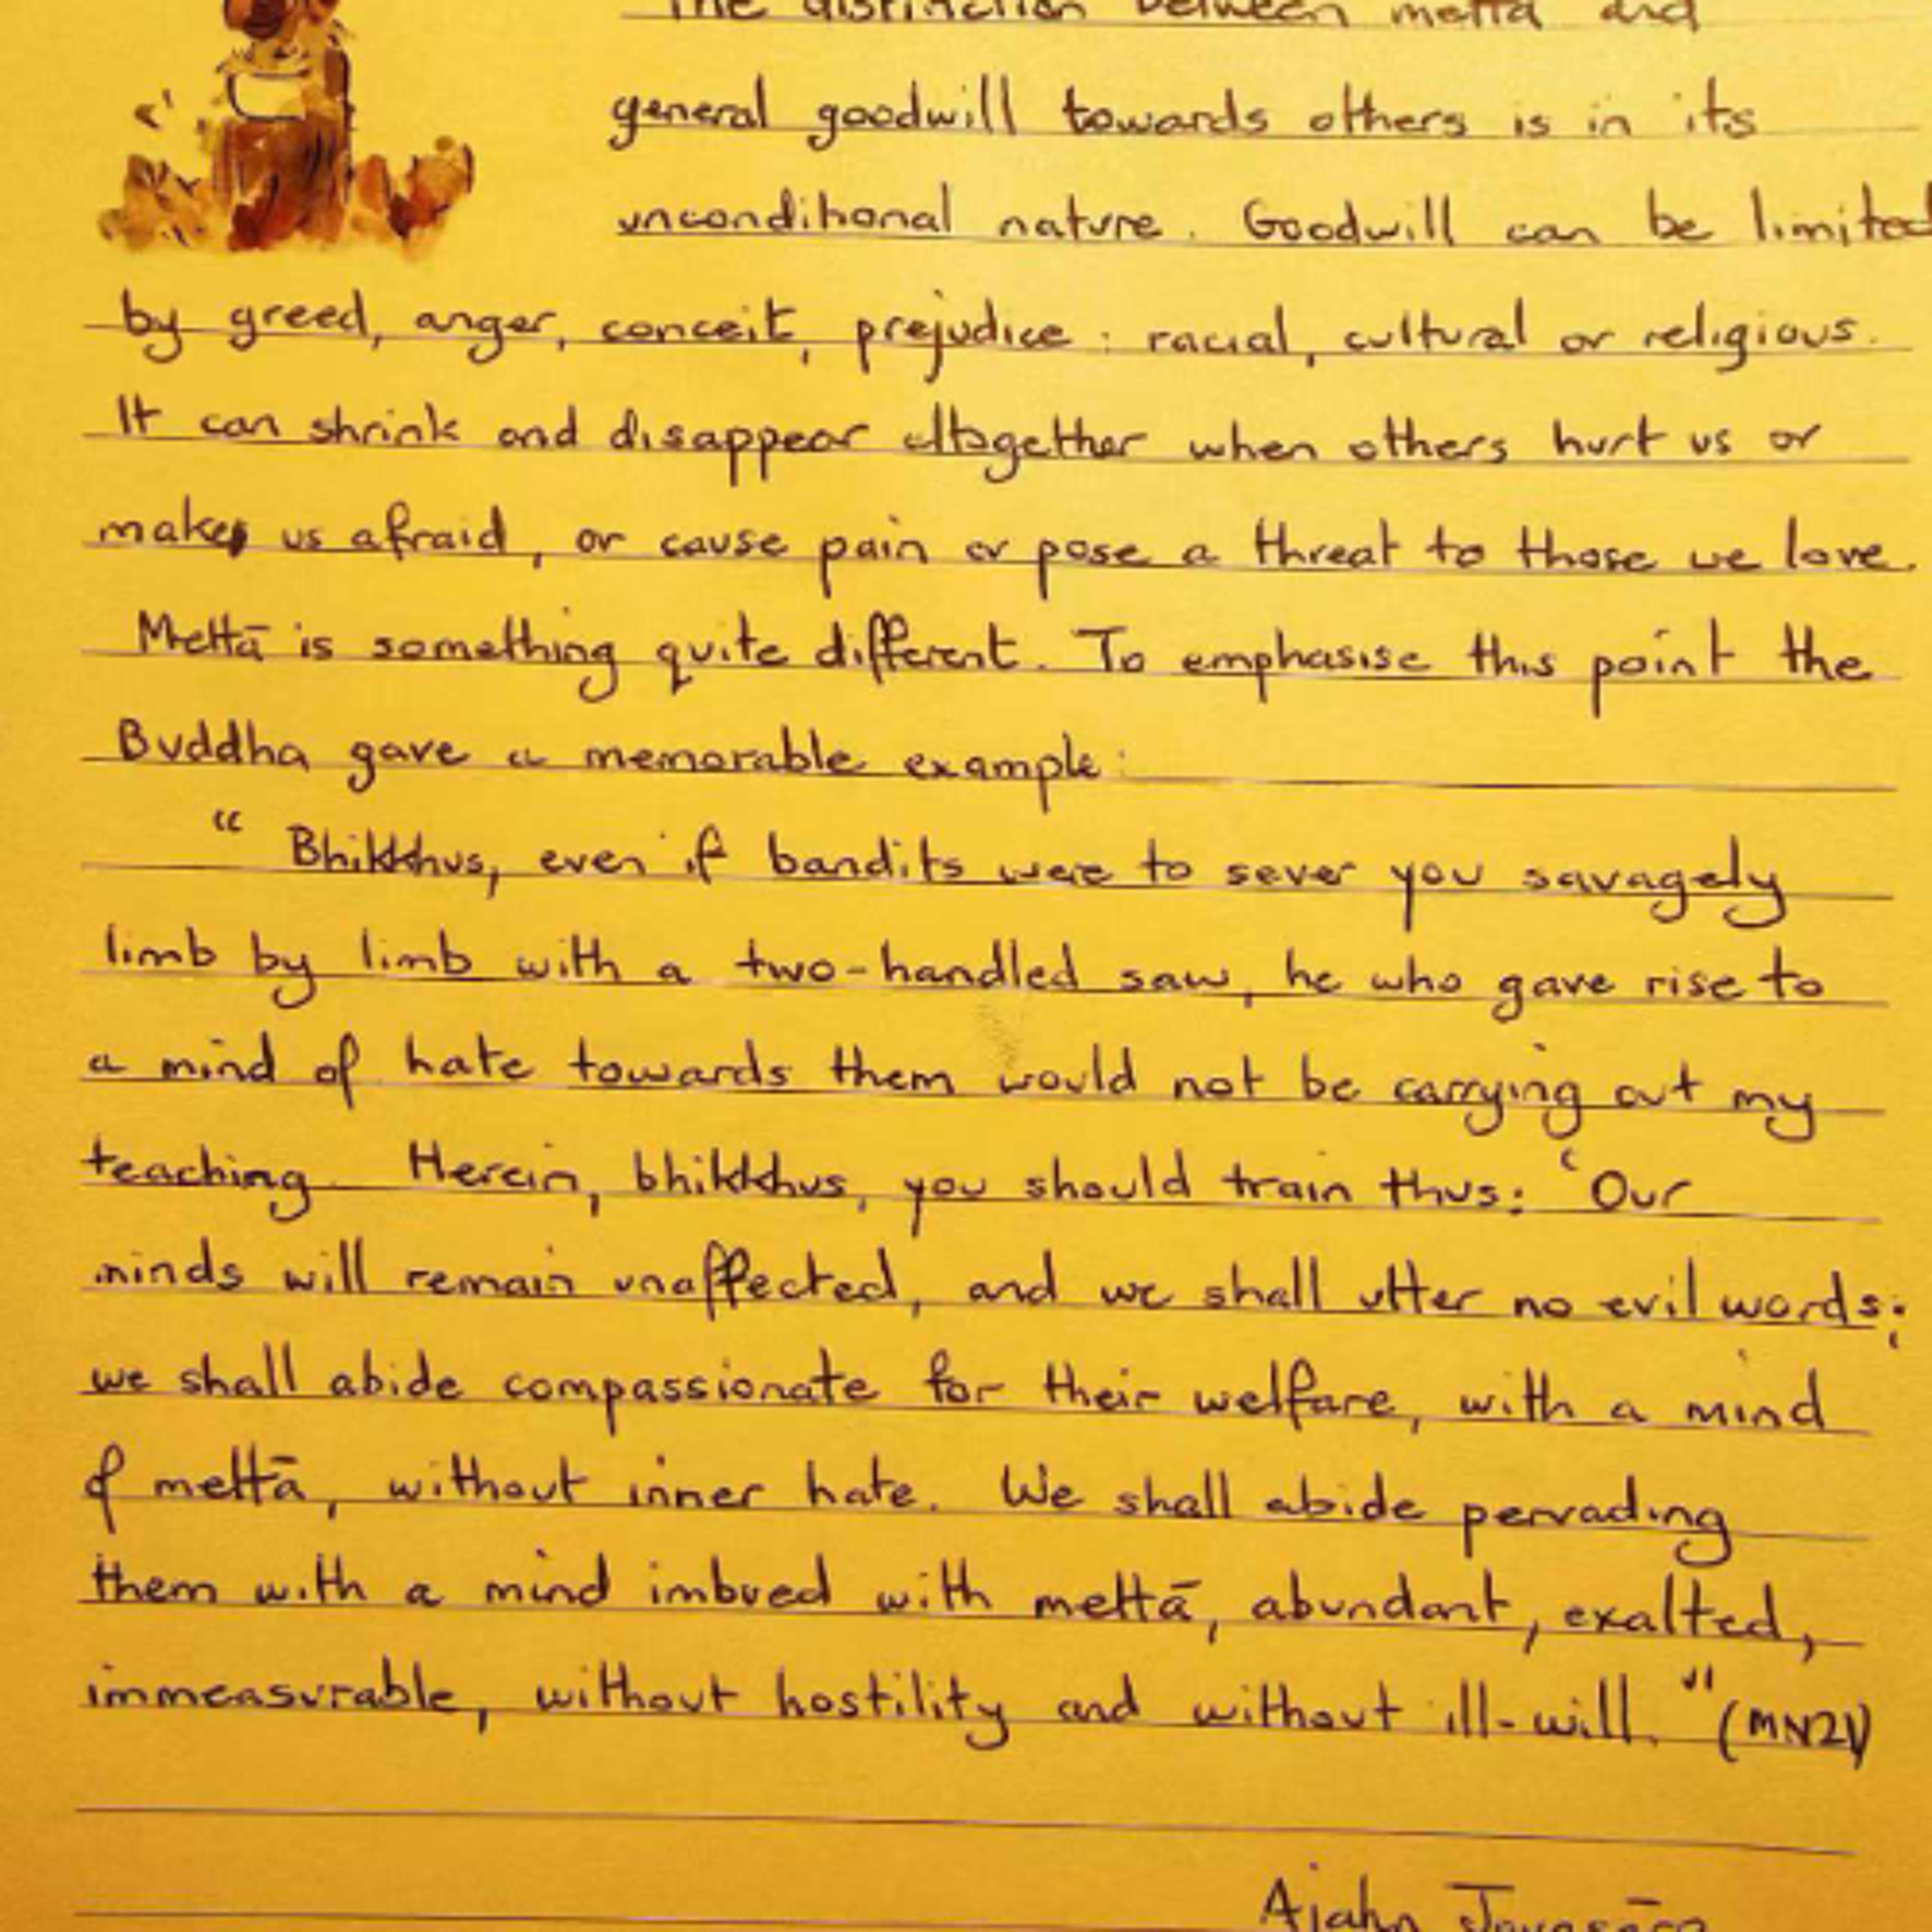 The distinction between mettā and
general goodwill towards others is in its
unconditional nature. Goodwill can be limited
by greed, anger, conceit, prejudice: racial, cultural or religious.
It can shrink and disappear altogether when others hurt us or
make us afraid, or cause pain or pose a threat to those we love.
Mettā is something quite different. To emphasise this point the
Buddha gave a memorable example:
“ Bhikkhus, even if bandits were to sever you savagely
limb by limb with a two-handled saw, he who gave rise to
a mind of hate towards them would not be carrying out my
teaching. Herein, bhikkhus, you should train thus: ‘Our
minds will remain unaffected, and we shall utter no evil words;
we shall abide compassionate for their welfare, with a mind
of mettā, without inner hate. We shall abide pervading
them with a mind imbued with mettā, abundant, exalted,
immeasurable, without hostility and without ill-will.’” (MN21)
Ajahn Jayasāro